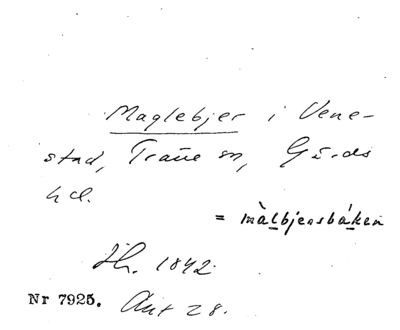 Maglebjer i Vene-
stad, Träne sn, Gärds
hd.
= màlbjersbáken
Hh. 1842
Nr 7925. Ant 28.